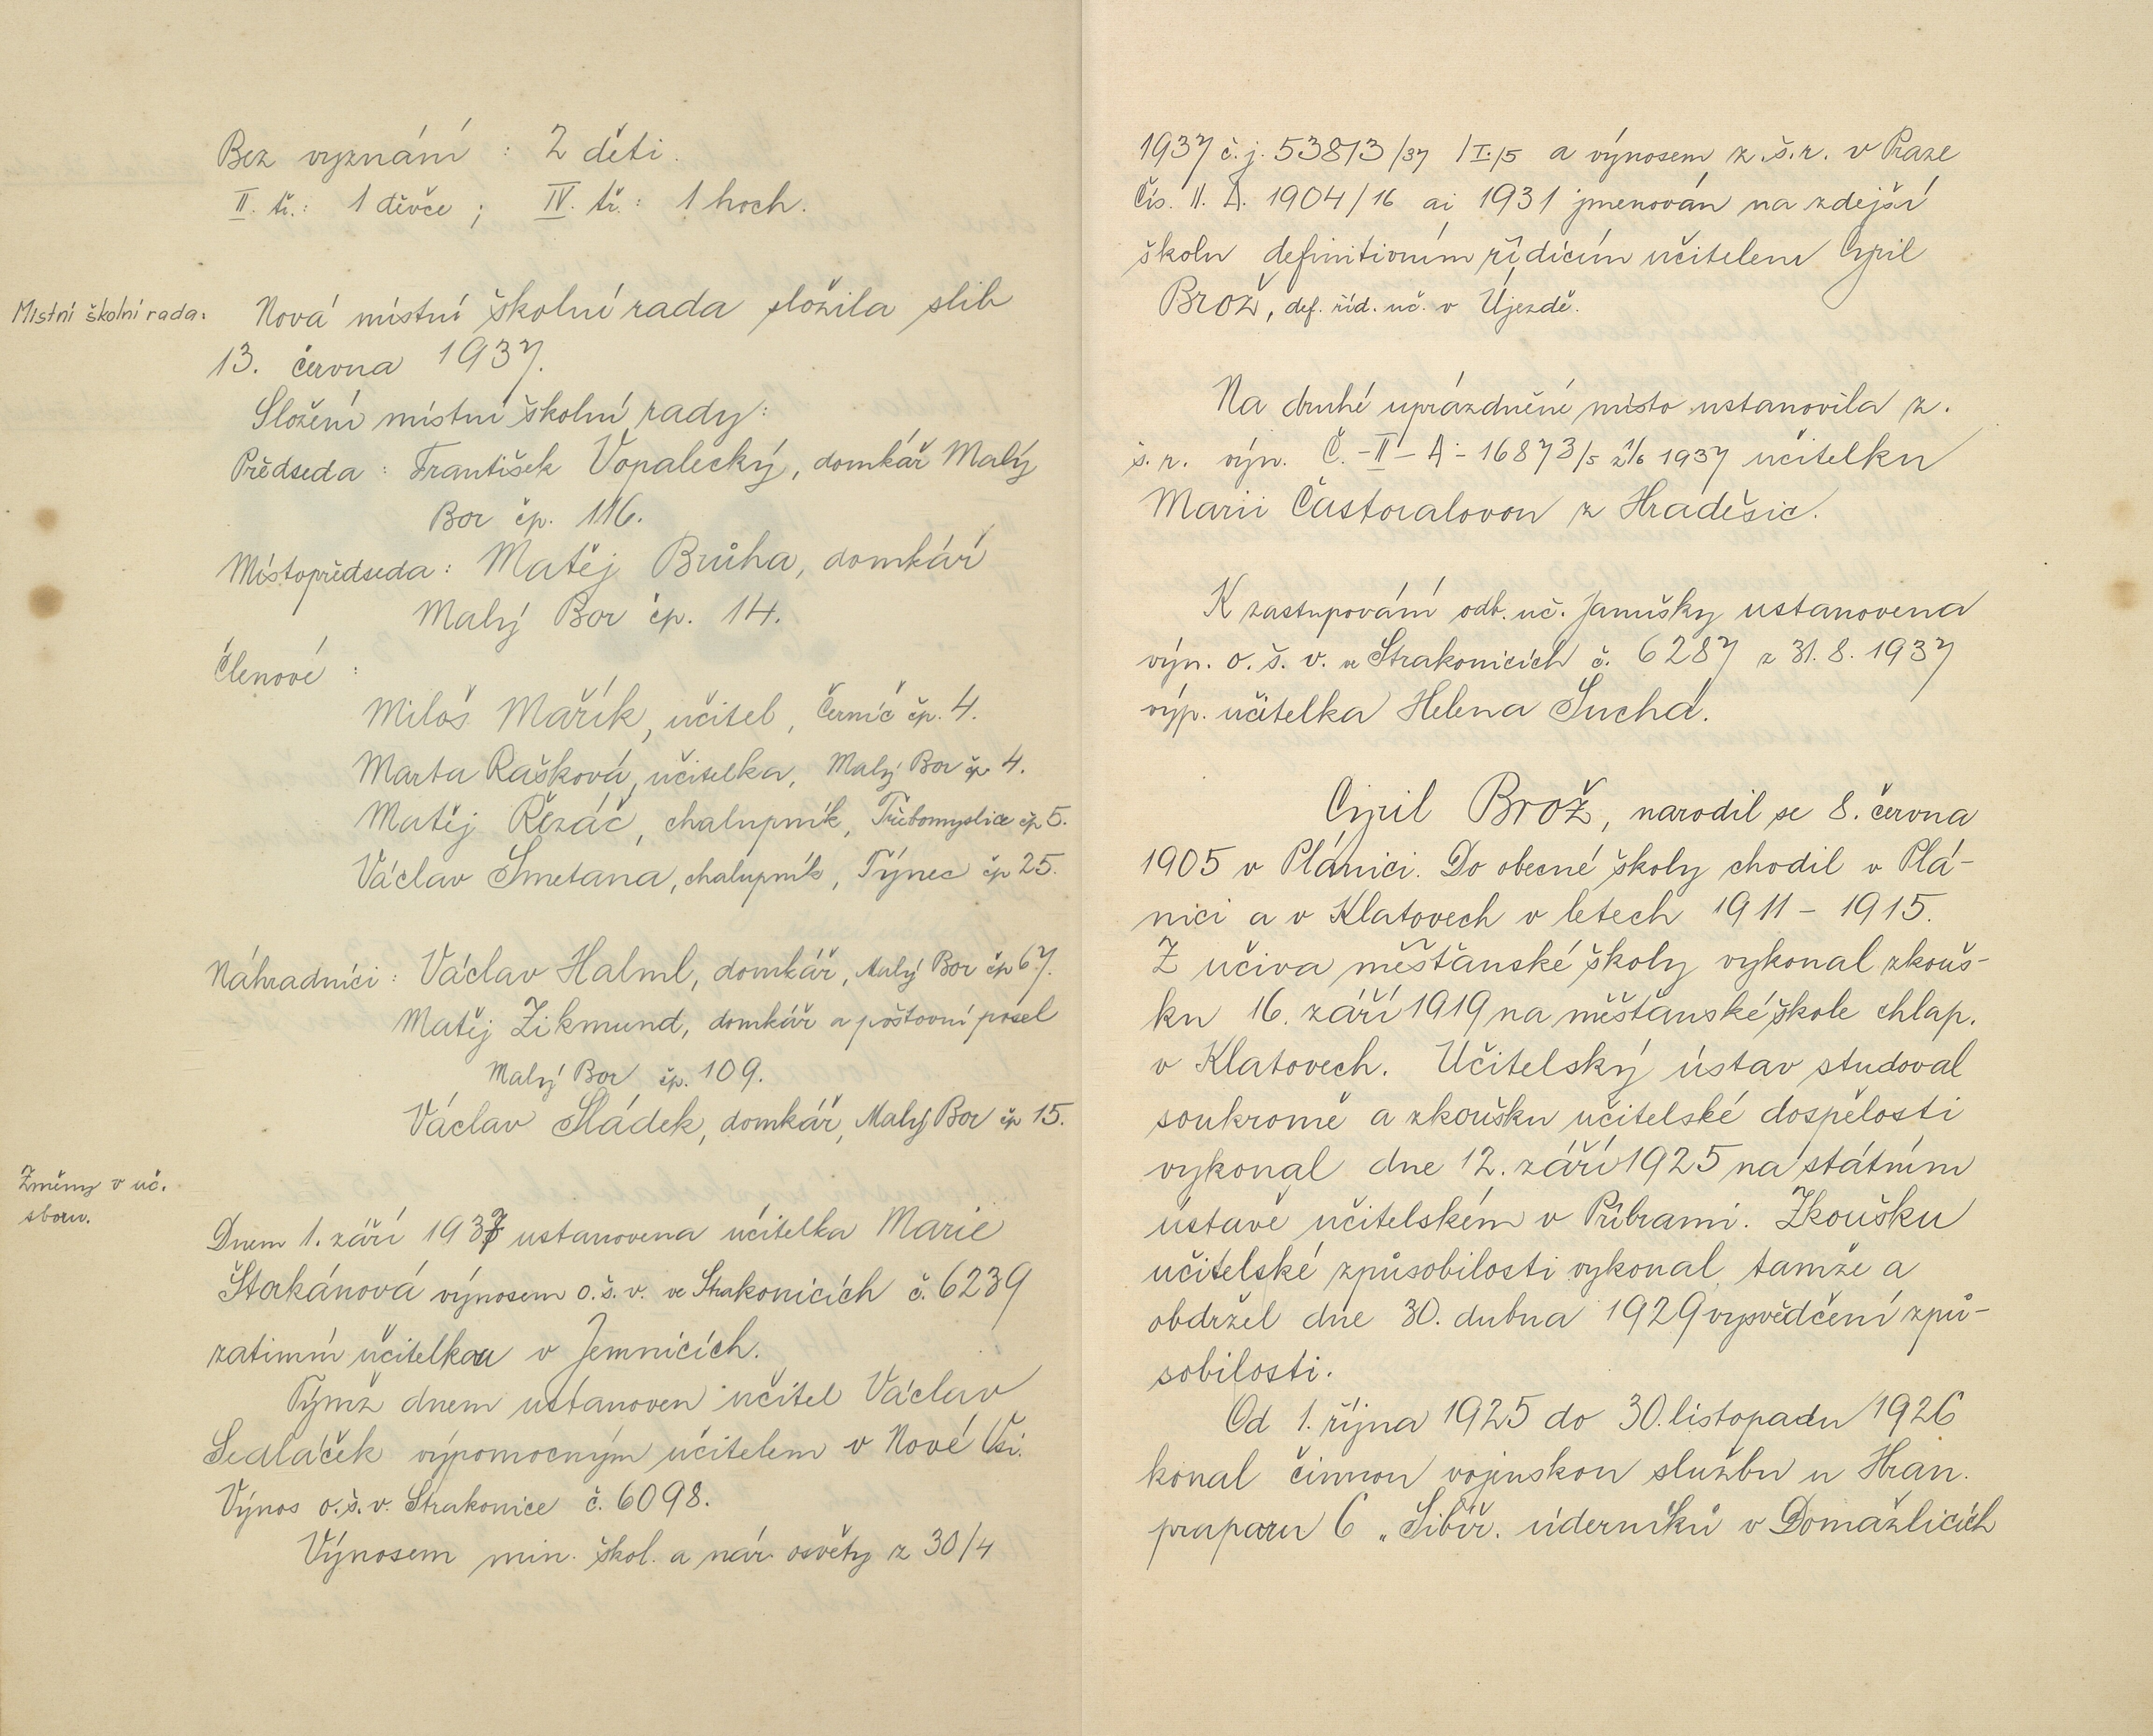 Bez vyznání : 2 děti.
II. tř.: 1 děvče ; IV. tř. : 1 hoch.
Místní školní rada.
Nová místní školní rada složila slib
13. června 1937.
Složení místní školní rady:
Předseda : František Vopalecký, domkář Malý
Bor čp. 116.
Místopředseda : Matěj Brůha, domkář
Malý Bor čp. 14.
Členové :
Miloš Mařík, učitel, Černíč čp. 4.
Marta Rašková, učitelka, Malý Bor čp. 4.
Matěj Řezáč, chalupník, Třebomyslice čp 5.
Václav Smetana, chalupník, Týnec čp 25.
Náhradníci : Václav Halml, domkář, Malý Bor čp 67.
Matěj Zikmund, domkář a poštovní posel
Malý Bor čp. 109.
Václav Sládek, domkář, Malý Bor čp 15.
Změny v uč.
sboru.
Dnem 1. září 1937 ustanovena učitelka Marie
Štokánová výnosem o.š.v. ve Strakonicích č. 6239
zatímní učitelkou v Jemnicích.
Týmž dnem ustanoven učitel Václav
Sedláček výpomocným učitelem v Nové Vsi.
Výnos o.š.v. Strakonice č. 6098.
Výnosem min. škol. a nár. osvěty z 30/4
1937 č.j. 53813/37 /I./5 a výnosem z.š.r. v Praze
Čís. II. A. 1904/16 ai 1931 jmenován na zdejší
školu definitivním řídícím učitelem Cyril
Brož, def. říd. uč. v Újezdě.
Na druhé uprázdněné místo ustanovila z.
š.r. výn. Č.-II-A-16873/5 z 1/6 1937 učitelku
Marii Častoralovou z Hradešic.
K zastupování odb. uč. Janušky ustanovena
výn. o.š.v. ve Strakonicích č. 6287 z 31.8.1937
výp. učitelka Helena Suchá.
Cyril Brož, narodil se 8. června
1905 v Plánici. Do obecné školy chodil v Plá-
nici a v Klatovech v letech 1911 - 1915.
Z učiva měšťanské školy vykonal zkouš-
ku 16. září 1919 na měšťanské škole chlap.
v Klatovech. Učitelský ústav studoval
soukromě a zkoušku učitelské dospělosti
vykonal dne 12. září 1925 na státním
ústavě učitelském v Příbrami. Zkoušku
učitelské způsobilosti vykonal tamže a
obdržel dne 30. dubna 1929 vysvědčení způ-
sobilosti.
Od 1. října 1925 do 30. listopadu 1926
konal činnou vojenskou službu u Hran.
praporu 6 „Sibiř. úderníků v Domažlicích